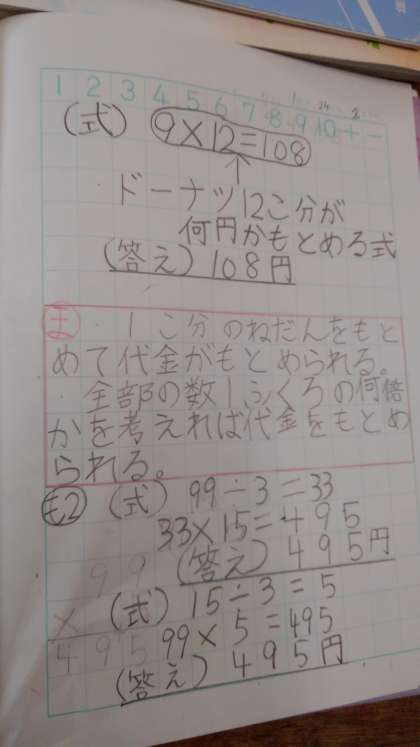 1 2 3 4 5 6 7 8 9 10 + -
(式) 9×12=108
↑
ドーナツ12こ分が
何円かもとめる式
(答え) 108円
ま ・1こ分のねだんをもと
めて代金がもとめられる。
・全部の数1ふくろの何倍
かを考えれば代金をもとめ
られる。
も2 (式) 99÷3=33
33×15=495
(答え) 495円
(式) 15÷3=5
99×5=495
(答え) 495円
99
×
495